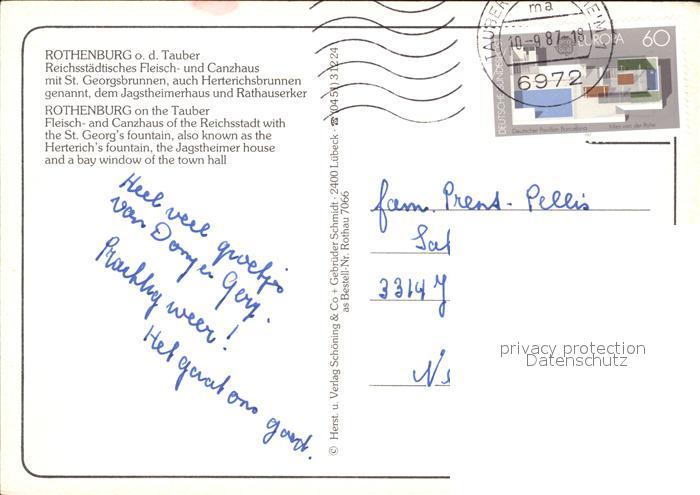 ROTHENBURG o. d. Tauber
Reichsstädtisches Fleisch- und Canzhaus
mit St. Georgsbrunnen, auch Herterichsbrunnen
genannt, dem Jagstheimerhaus und Rathauserker
ROTHENBURG on the Tauber
Fleisch- and Canzhaus of the Reichsstadt with
the St. Georg's fountain, also known as the
Herterich's fountain, the Jagstheimer house
and a bay window of the town hall
Heel veel groetjes
van Dony en Gery.
Prachtig weer!
Het gaat ons goed.
© Herst. u. Verlag Schöning & Co + Gebrüder Schmidt · 2400 Lübeck · ☎ 04 51/3 10 24
as Bestell-Nr. Rothau 7066
TAUBER
ma
10-9.87-18
6972
DEUTSCHE BUNDESPOST
EUROPA 60
Deutscher Pavillon Barcelona Mies van der Rohe
fam. Prent-Pellis
3314
privacy protection
Datenschutz